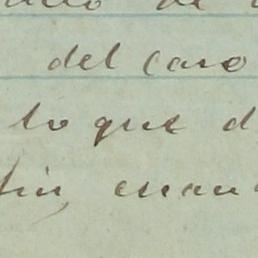 de
del caso
lo que d
fin, cuan